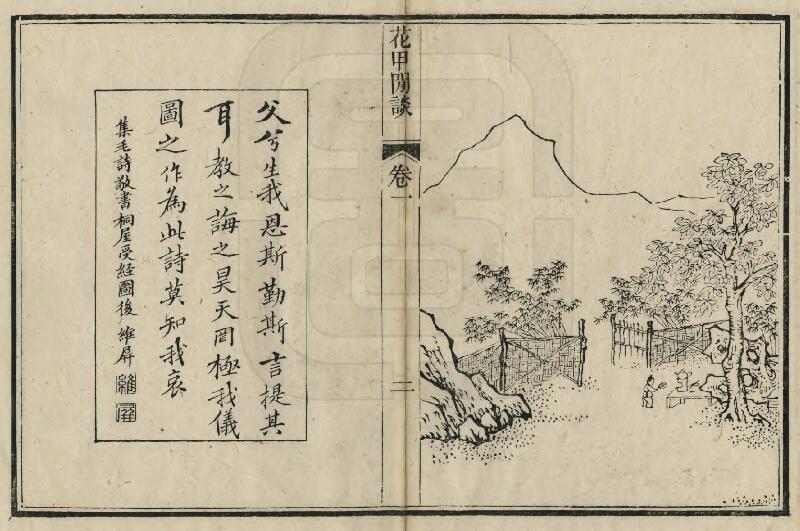 花甲閒談
卷一
二
父兮生我恩斯勤斯言提其
耳教之誨之昊天罔極我儀
圖之作為此詩莫知我哀
集毛詩敬書桐屋受經圖後維屏
維
屏